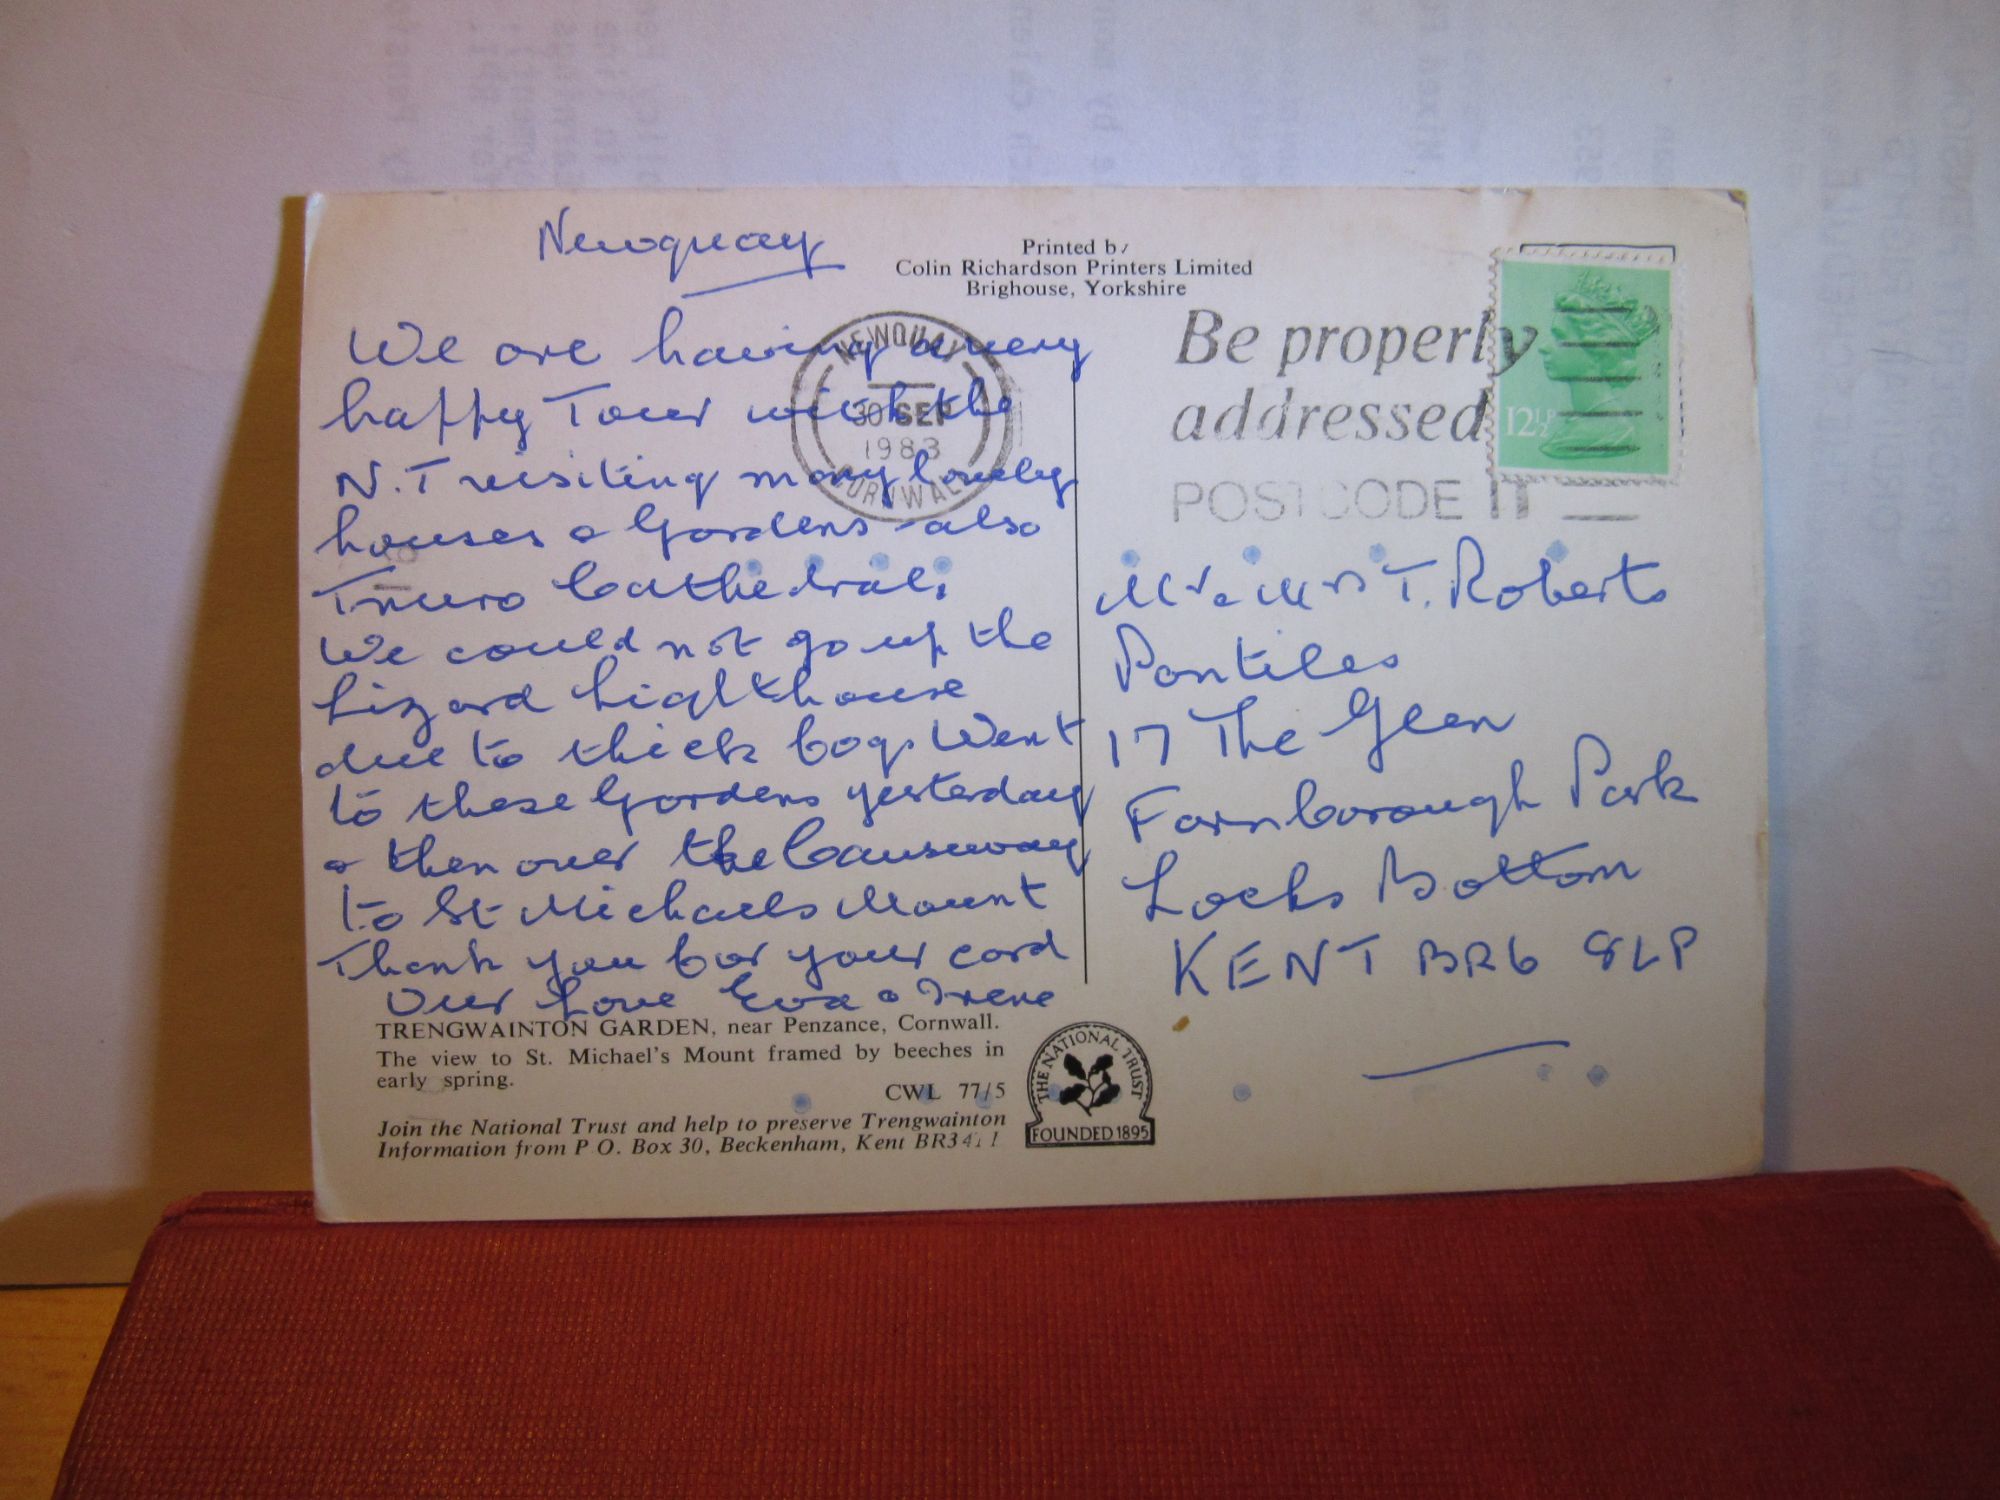 Newquay
We are having a very
happy Tour with the
N.T visiting many lovely
houses & Gardens - also
Truro Cathedral.
We could not go up the
Lizard Lighthouse
due to thick fog. Went
to these Gardens yesterday
& then over the Causeway
to St Michaels Mount
Thank you for your card
Our Love Eva & Irene
TRENGWAINTON GARDEN, near Penzance, Cornwall.
The view to St. Michael's Mount framed by beeches in
early spring.
CWL 77/5
Join the National Trust and help to preserve Trengwainton
Information from P O. Box 30, Beckenham, Kent BR3
THE NATIONAL TRUST
FOUNDED 1895
Printed by
Colin Richardson Printers Limited
Brighouse, Yorkshire
NEWQUAY
30 SEP
1983
CORNWALL
Be properly
addressed
POSTCODE IT
12½P
Mr & Mrs T. Roberts
Pantiles
17 The Glen
Farnborough Park
Locks Bottom
KENT BR6 8LP